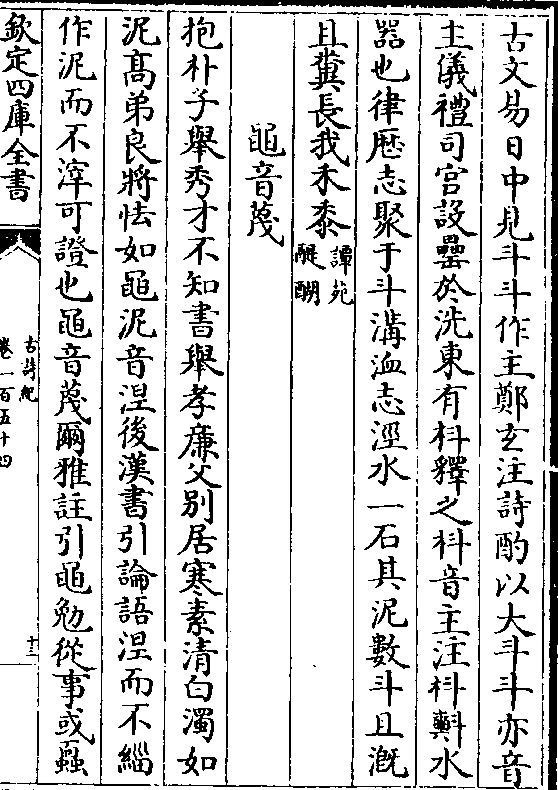 古文易日中見斗斗作主鄭玄注詩酌以大斗斗亦音
主儀禮司宫設罍於洗東有枓釋之枓音主注枓㪺水
器也律歴志聚于斗溝洫志涇水一石其泥數斗且溉
且糞長我禾黍譚苑醍醐
黽音蔑
抱朴子舉秀才不知書舉孝廉父别居寒素清白濁如
泥髙弟良將怯如黽泥音涅後漢書引論語涅而不緇
作泥而不滓可證也黽音蔑爾雅註引黽勉從事或蠠
欽定四庫全書
古詩紀
卷一百五十四
十三